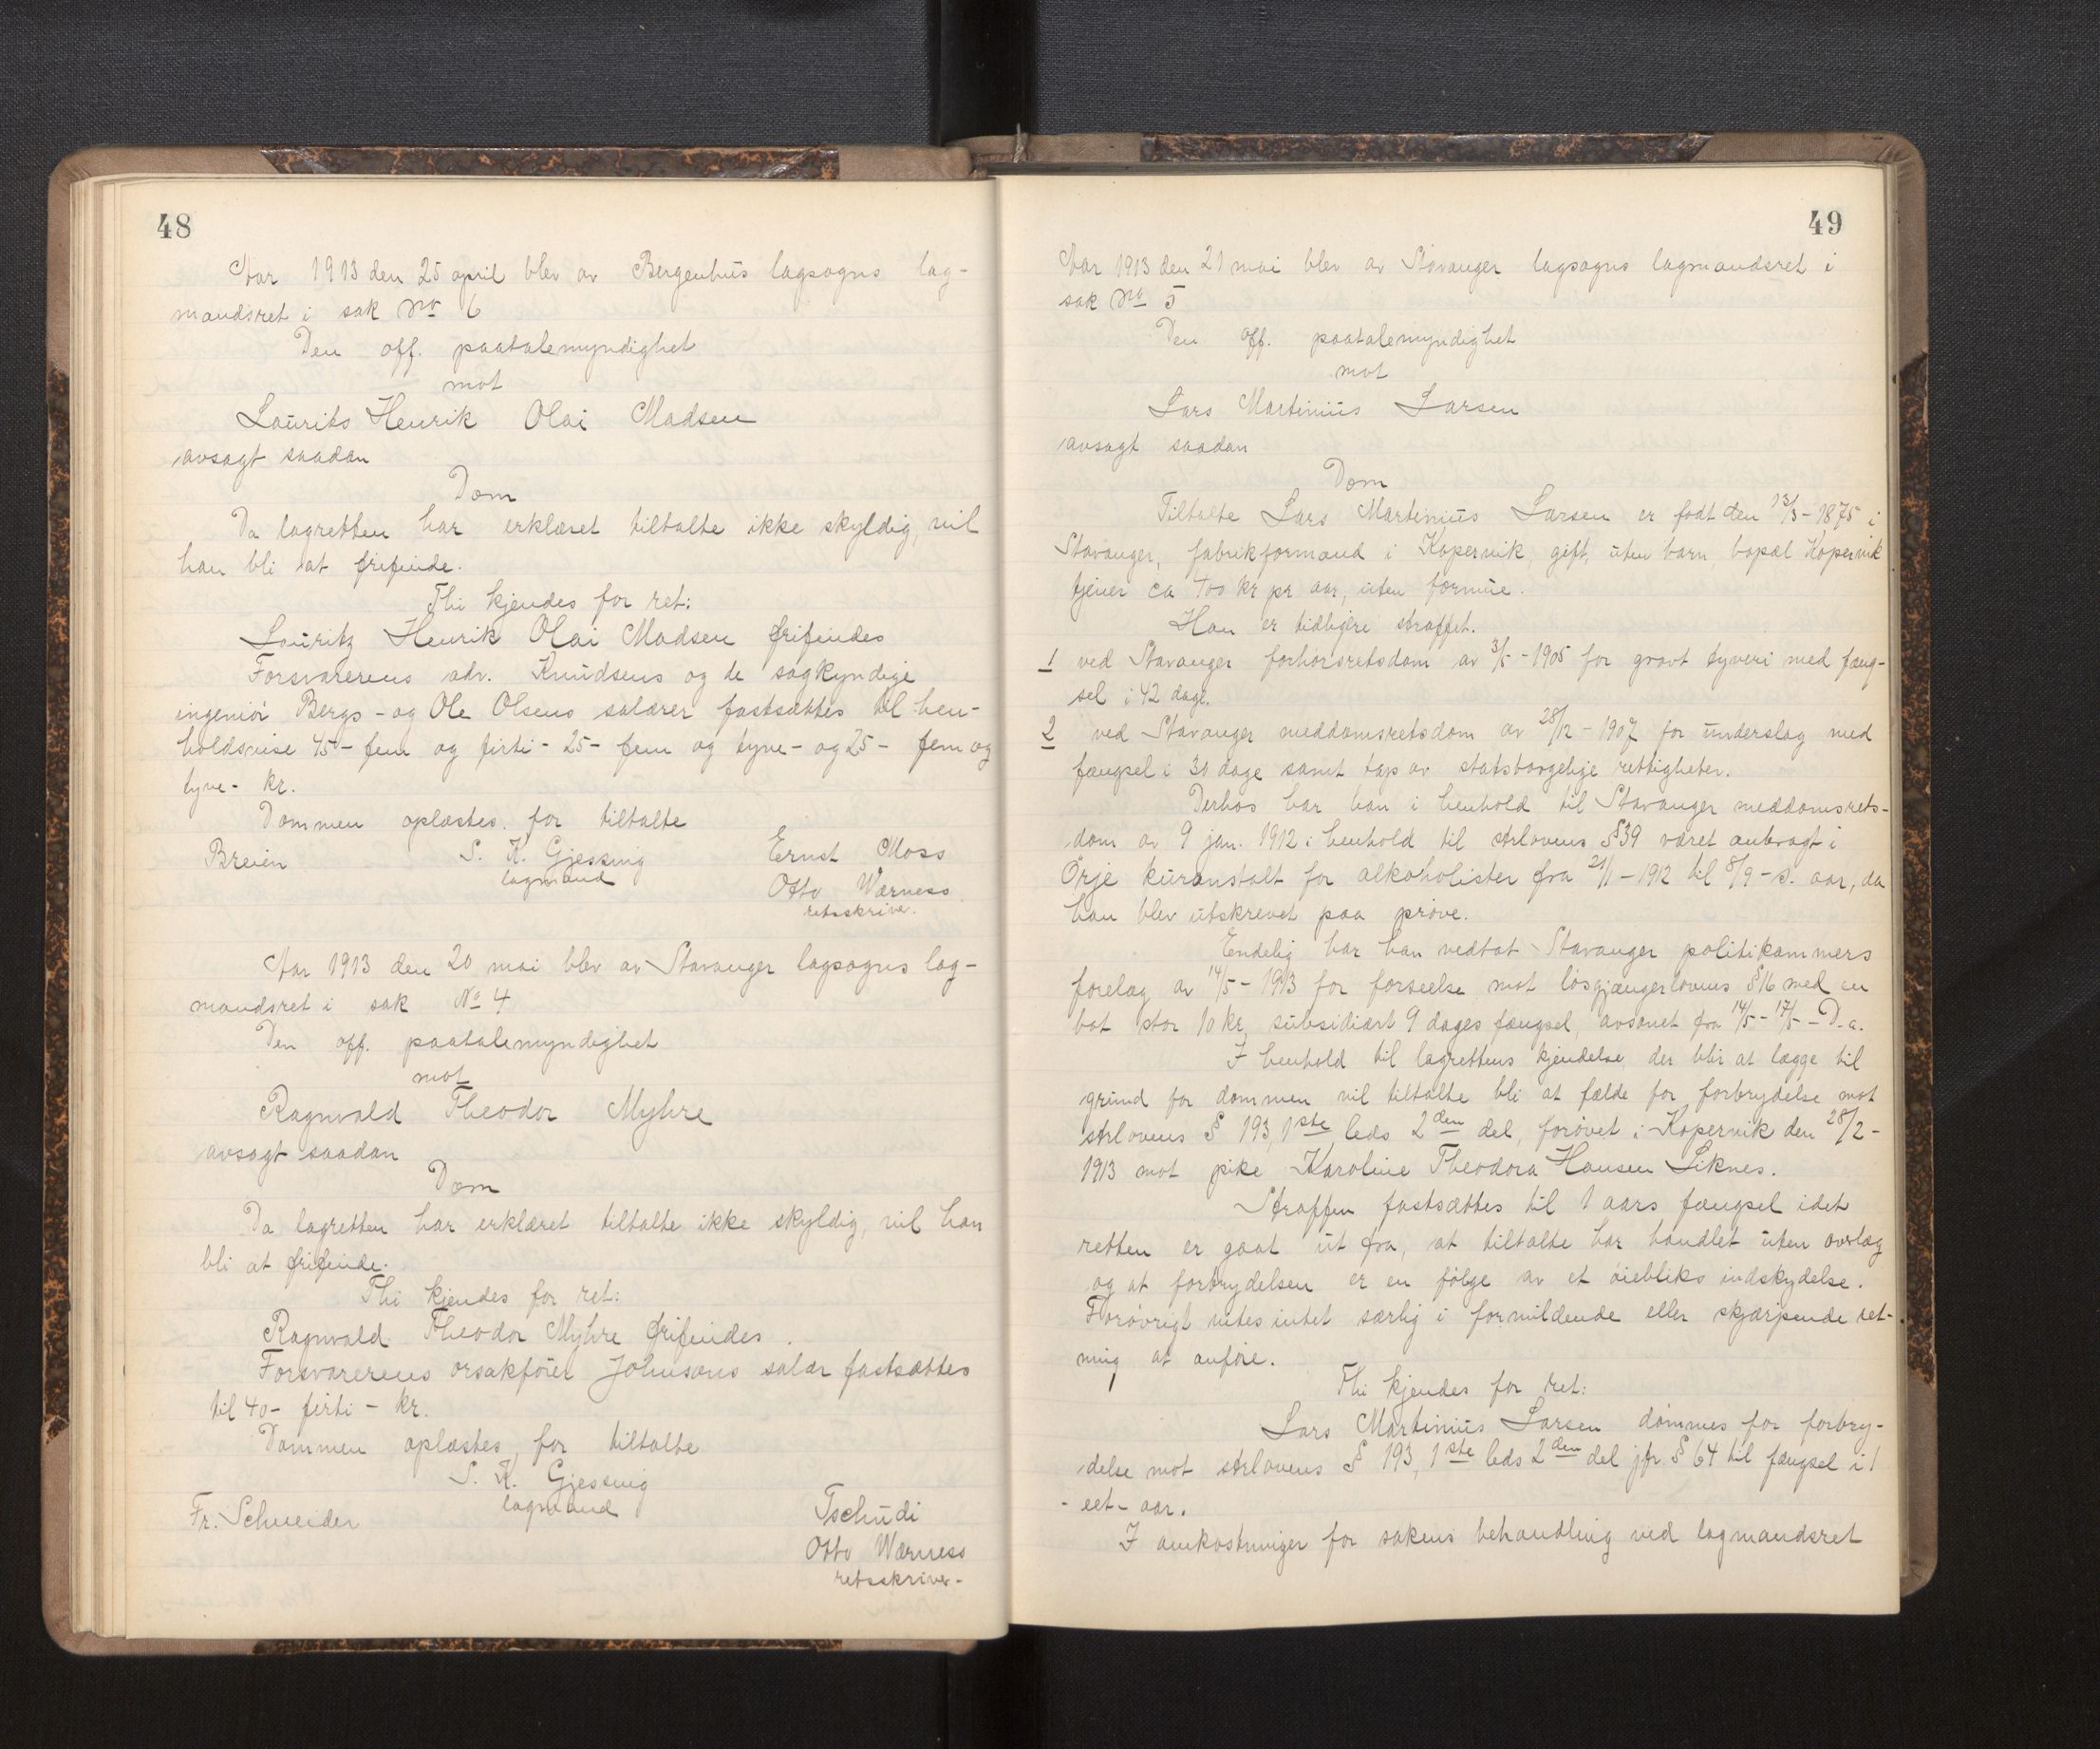 48
Aar 1913 den 25 april blev av Bergenhus lagsogns lag-
mandsret i sak No 6
Den off. paatalemyndighet
mot
Laurits Henrik Olai Madsen
avsagt saadan
Dom
Da lagretten har erklæret tiltalte ikke skyldig, vil
han bli at frifinde.
Thi kjendes for ret:
Lauritz Henrik Olai Madsen frifindes
Forsvarerens adv. Knudsens og de sagkyndige
ingeniør Bergs - og Ole Olsens salærer fastsættes til hen-
holdsvise 45 - fem og firti - 25 - fem og tyve - og 25 - fem og
tyve - kr.
Dommen oplæstes for tiltalte
Breien S. K. Gjessing Ernst Moss
lagmand Otto Wærness
retsskriver.
Aar 1913 den 20 mai blev av Stavanger lagsogns lag-
mandsret i sak No 4
Den off. paatalemyndighet
mot
Ragnvald Theodor Myhre
avsagt saadan
Dom
Da lagretten har erklæret tiltalte ikke skyldig, vil han
bli at frifinde.
Thi kjendes for ret:
Ragnvald Theodor Myhre frifindes.
Forsvarerens orsakfører Johnsons salær fastsættes
til 40 - firti - kr.
Dommen oplæstes for tiltalte
S. K. Gjessing
lagmand
Fr. Schneider Tschudi
Otto Wærness
retsskriver-
49
Aar 1913 den 21 mai blev av Stavanger lagsogns lagmandsret i
sak No 5
Den off. paatalemyndighet
mot
Lars Martinius Larsen
avsagt saadan
Dom
Tiltalte Lars Martinius Larsen er født den 13/3 - 1875 i
Stavanger, fabrikformand i Kopervik, gift, uten barn, bopæl Kopervik
tjener ca 700 kr pr aar, uten formue.
Han er tidligere straffet.
1 ved Stavanger forhørsretsdom av 3/5 - 1905 for grovt tyveri med fæng-
sel i 42 dage.
2 ved Stavanger meddomsretsdom av 28/12 - 1907 for underslag med
fængsel i 30 dage samt tap av statsborgelige rettigheter.
Derhos har han i henhold til Stavanger meddomsrets-
dom av 9 jan. 1912 i henhold til strlovens § 39 været anbragt i
Ørje kuranstalt for alkoholister fra 21/1 - 1912 til 8/9 - s. aar, da
han blev utskrevet paa prøve.
Endelig har han vedtat Stavanger politikammers
forelæg av 14/5 - 1913 for forseelse mot løsgjængerlovens § 16 med en
bot stor 10 kr, subsidiært 9 dages fængsel, avsonet fra 14/5 - 17/5 - D.a.
I henhold til lagrettens kjendelse der blir at lægge til
grund for dommen vil tiltalte bli at fælde for forbrydelse mot
strlovens § 193, 1ste leds 2den del, forøvet i Kopervik den 28/2 -
1913 mot pike Karoline Theodora Hansen Liknes.
Straffen fastsættes til 1 aars fængsel idet
retten er gaat ut fra, at tiltalte har handlet uten overlæg
og at forbrydelsen er en følge av et øiebliks indskydelse.
Forøvrigt vites intet særlig i formildende eller skjærpende ret-
ning at anføre.
Thi kjendes for ret:
Lars Martinius Larsen dømmes for forbry-
delse mot strlovens § 193, 1ste leds 2den del jfr § 64 til fængsel i 1
- eet - aar.
I omkostninger for sakens behandling ved lagmandsret